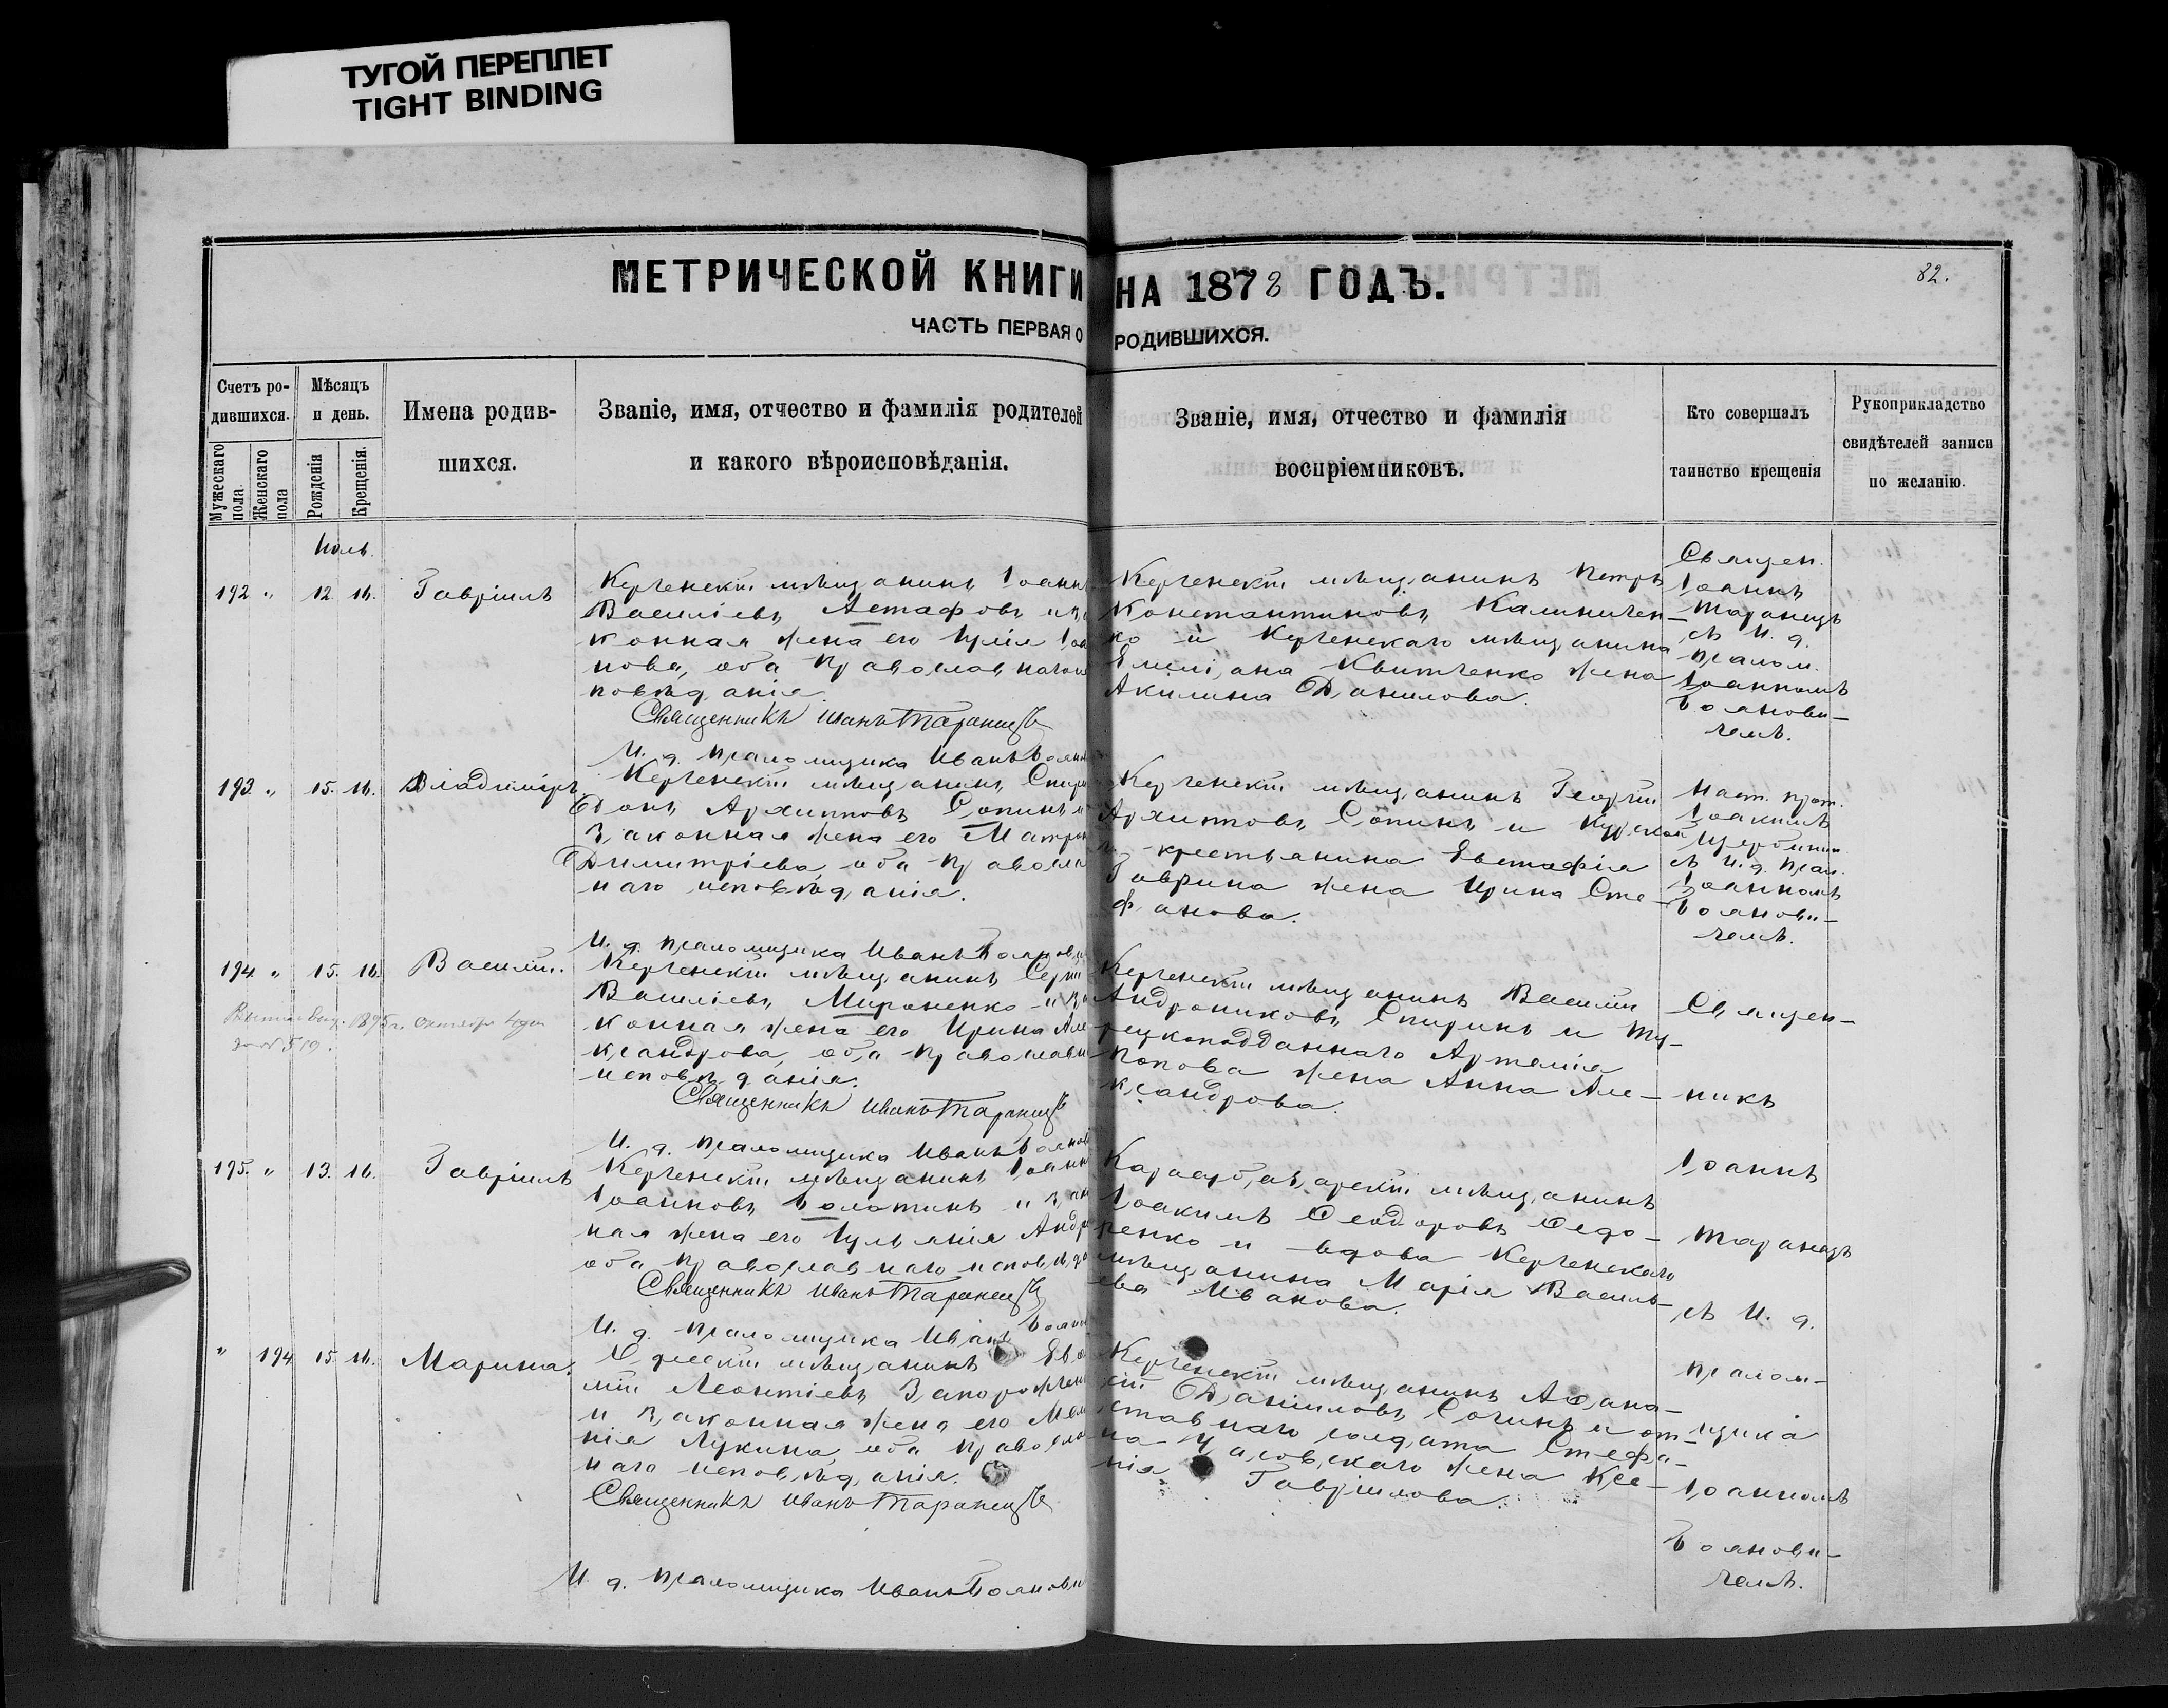 ТУГОЙ ПЕРЕПЛЕТ
TIGHT BINDING
МЕТРИЧЕСКОЙ КНИГИ НА 1878 ГОДЪ.
82.
ЧАСТЬ ПЕРВАЯ О РОДИВШИХСЯ.
Счетъ ро-
дившихся.
Мужескаго пола
Женскаго пола
Мѣсяцъ
и день.
Рожденія
Крещенія.
Имена родив-
шихся.
Званіе, имя, отчество и фамилія родителей
и какого вѣроисповѣданія.
Званіе, имя, отчество и фамилія
воспріемниковъ.
Кто совершалъ
таинство крещенія
Рукоприкладство
свидѣтелей записи
по желанію.
Іюль.
192 " 12 16. Гавріилъ
Керченскій мѣщанинъ Іоаннъ
Василіевъ Астафовъ и за
конная жена его Юлія Іоа
нова, оба православнаго ис
повѣданія.
Священникъ Иванъ Таранецъ
И. д. псаломщика Иванъ Боянов
Керченскій мѣщанинъ Петръ
Константиновъ Калиничен-
ко и Керченскаго мѣщанина
Емеліана Квитченко жена
Акилина Данилова.
Священ.
Іоаннъ
Таранецъ
съ И. д.
псалом.
Іоанномъ
Боянови-
чемъ.
193 " 15. 16. Владиміръ
Керченскій мѣщанинъ Спири
донъ Архиповъ Сопинъ и
законная жена его Матрон
Димитріева, оба православ
наго исповѣданія.
И. д. псаломщика Иванъ Боянови
Керченскій мѣщанинъ Георгій
Архиповъ Сопинъ и Курской
г. крестьянина Евстафія
Гаврина жена Ирина Сте-
фанова.
Наст. прот.
Іоакимъ
съ И. д. псал.
Іоанномъ
Боянови-
чемъ.
194 " 15. 16. Василій.
1895 г. октября
за № 519.
Керченскій мѣщанинъ Сергій
Василіевъ Мироненко и за
конная жена его Ирина Але
ксандрова, оба православн
исповѣданія.
Священникъ Иванъ Таранецъ
И. д. псаломщика Иванъ Боянов
Керченскій мѣщанинъ Василій
Андрониковъ Спиринъ и Ту-
рецкоподданнаго Артемія
Попова жена Анна Але-
ксандрова.
195. " 13. 16. Гавріилъ
Керченскій мѣщанинъ Іоанн
Іоанновъ Болотинъ и закон
ная жена его Іуліанія Андре
оба православнаго исповѣда
Священникъ Иванъ Таранецъ
И. д. псаломщика Иванъ Боянов
Карасубазарскій мѣщанинъ
Іоакимъ Ѳеодоровъ Ѳедо-
ренко и вдова Керченскаго
мѣщанина Марія Василь-
ева Иванова.
" 194 15 16. Марина.
Одесскій мѣщанинъ Евѳи
мій Леонтіевъ Запорожчен
и законная жена его Мела
нія Лукина, оба православ
наго исповѣданія.
Священникъ Иванъ Таранецъ
И. д. псаломщика Иванъ Боянови
Керченскій мѣщанинъ Аѳана-
сій Даніиловъ Сочинъ и от-
ставнаго солдата Стефа-
на жена Ксе-
нія Гавріилова.
Священ-
никъ
Іоаннъ
Таранецъ
съ И. д.
псалом-
щика
Іоанномъ
Боянови-
чемъ.